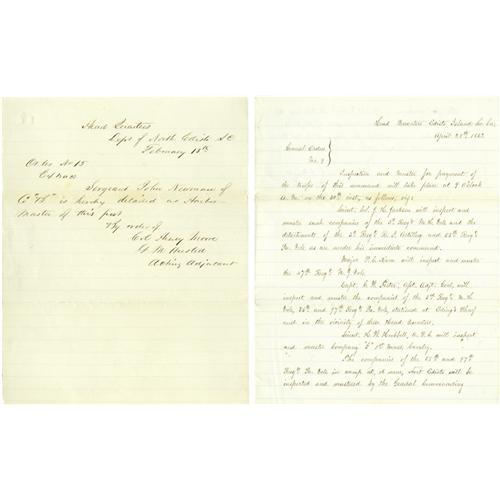 Head Quarters
Dept of North Edisto S C
February 18th
Order No 15
Extract
Sergeant John Newman of
Co "B" is hereby detailed as Harbor
Master of this post
By order of
Col Henry Moore
Acting Adjutant
Head Quarters Edisto Island So. Ca.
April 28th, 1862.
General Orders
No. 9
Inspection and Muster for payment of
the troops of this command will take place at 9 O'clock
A. M. on the 30th inst, as follows, viz:
Lieut. Col. J. H. Jackson will inspect and
muster such companies of the 3d Reg't N. H. Vols and the
detachments of the 3d Reg't R. I. Artillery and 55th Reg't
Pa. Vols as are under his immediate command.
Major will inspect and muster
the 47th Reg't N. Y. Vols.
Capt. Asst. Adjt. Genl, will
inspect and muster the companies of the 3d Reg't N. H.
Vols, and 97th Reg't Pa. Vols, stationed at Wharf
and in the vicinity of these Head Quarters.
Lieut. Hubbell, will inspect
and muster Company 1st Mass. Cavalry.
The companies of the 55th and 97th
Reg't Pa. Vols in camp at, or near, Edisto will be
inspected and mustered by the General Commanding